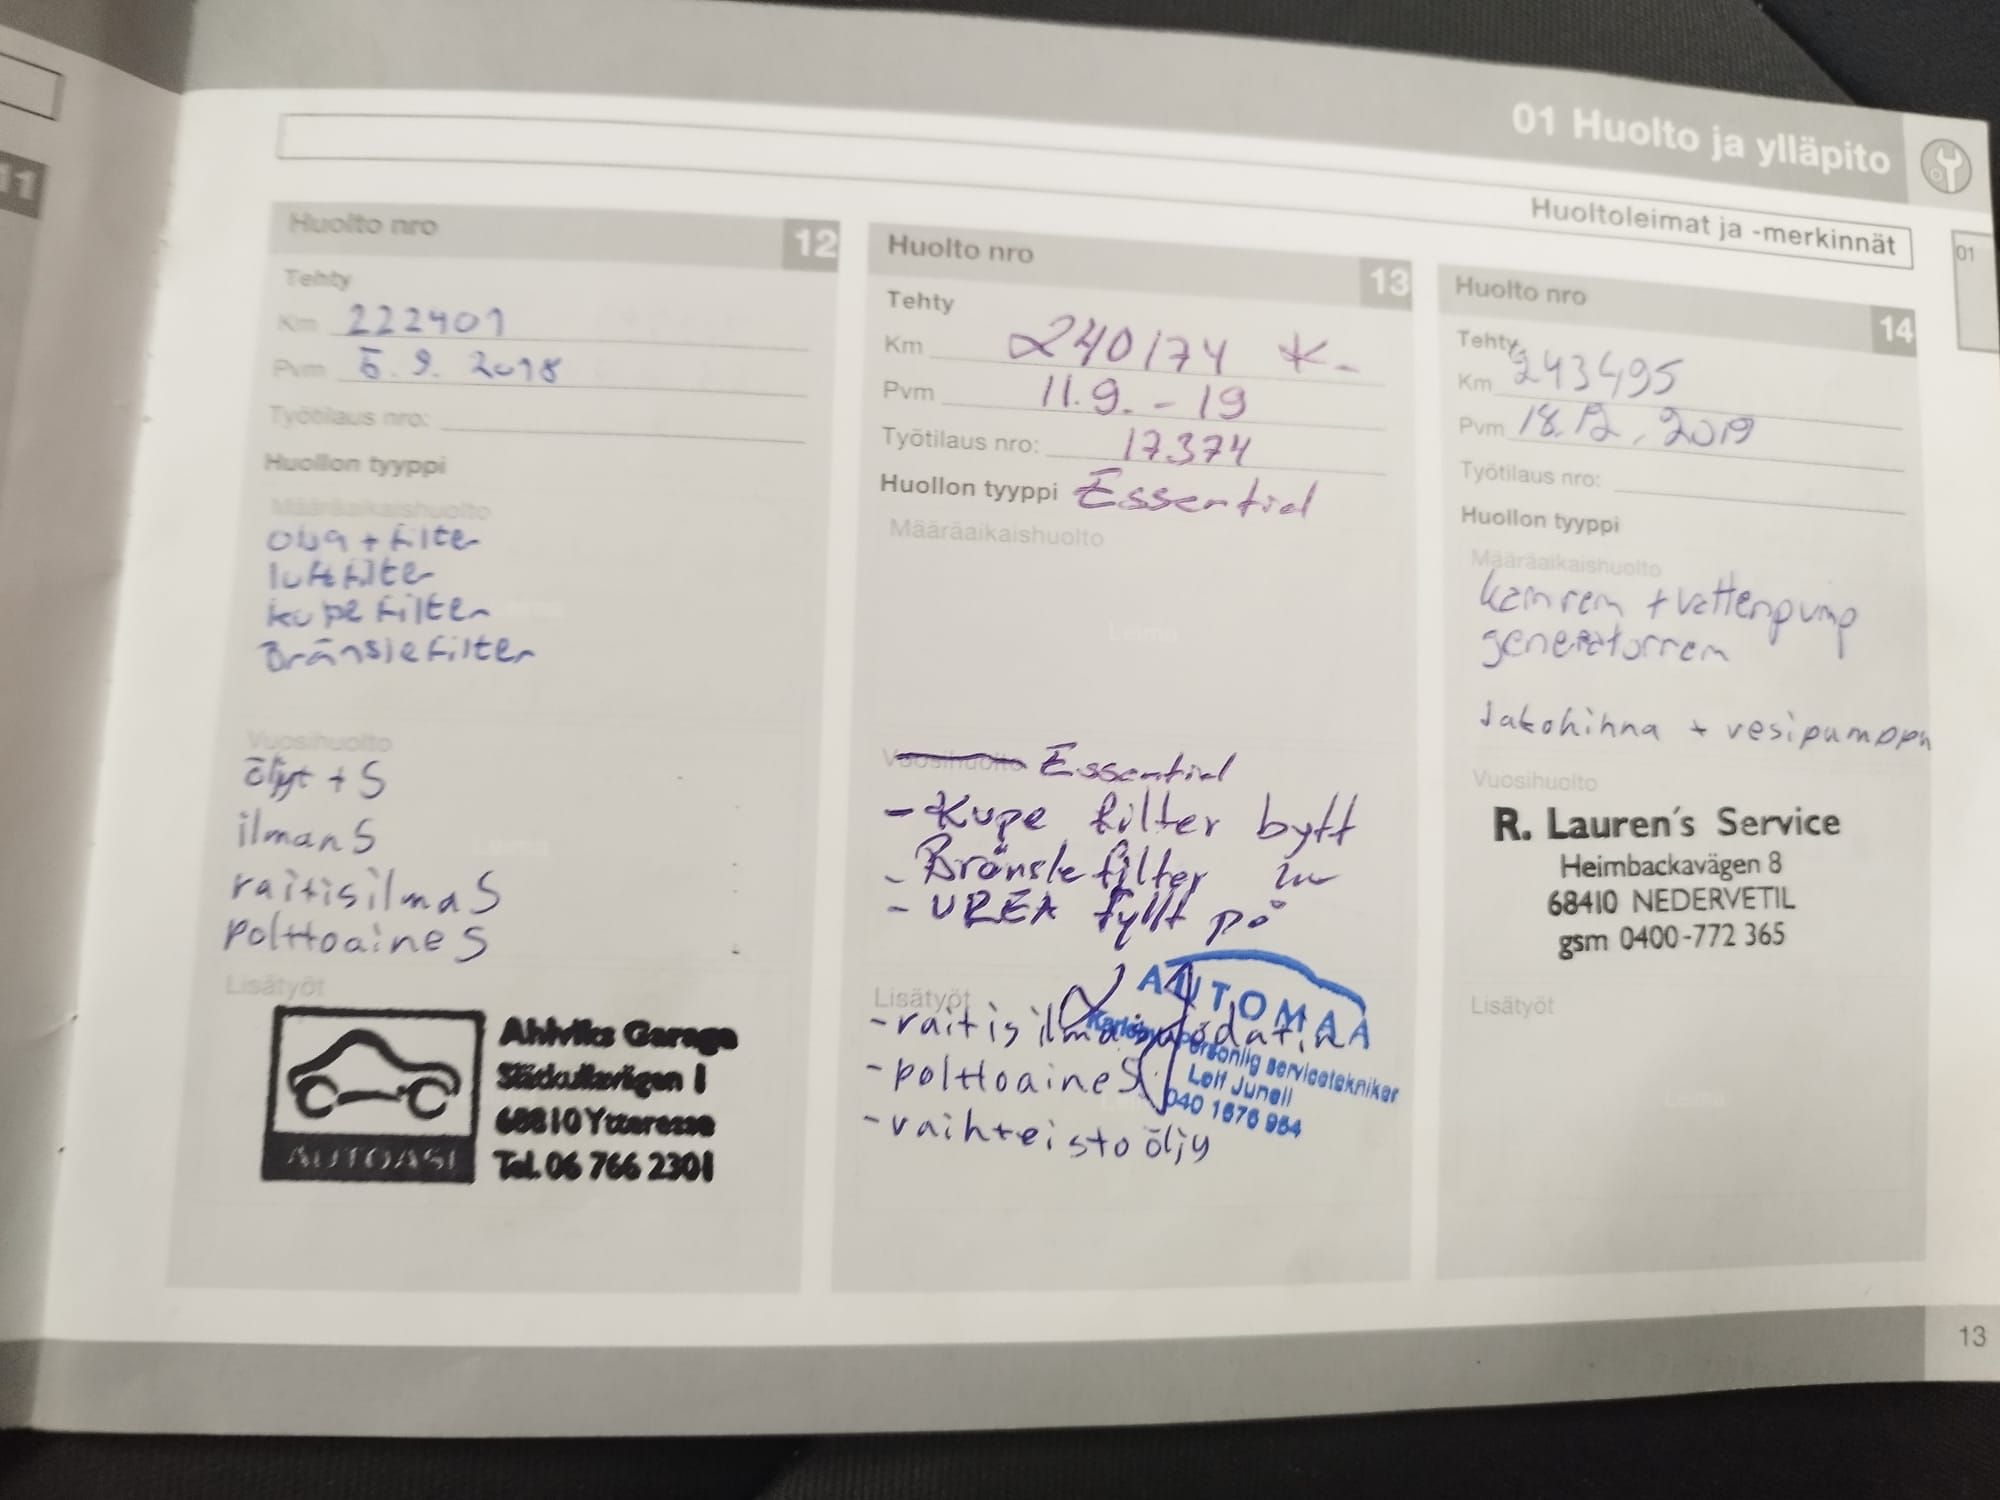 11
01 Huolto ja ylläpito
Huoltoleimat ja -merkinnät
01
Huolto nro 12
Tehty
Km 222401
Pvm 5.9. 2018
Työtilaus nro:
Huollon tyyppi
Määräaikaishuolto
olja + filter
luftfilter
kupefilter
Bränslefilter
Leima
Vuosihuolto
öljyt + S
ilman S
Leima
raitisilma S
polttoaine S
Lisätyöt
AUTOASI
Ahlviks Garage
68810 Ytteresse
Tel. 06 766 2301
Huolto nro 13
Tehty
Km 240174 K-
Pvm 11.9.-19
Työtilaus nro: 17374
Huollon tyyppi Essential
Määräaikaishuolto
Leima
Vuosihuolto Essential
- Kupe filter bytt
- Bränslefilter
- UREA fyllt på
AUTOMAA
Lisätyöt
- raitisilma
personlig servicetekniker
Leif Junell
040 1676 954
- polttoaine S
- vaihteistoöljy
Huolto nro 14
Tehty
Km 243495
Pvm 18.12.2019
Työtilaus nro:
Huollon tyyppi
Määräaikaishuolto
kamrem + vattenpump
generatorrem
Jakohihna + vesipumppu
Vuosihuolto
R. Lauren's Service
Heimbackavägen 8
68410 NEDERVETIL
gsm 0400-772 365
Lisätyöt
13